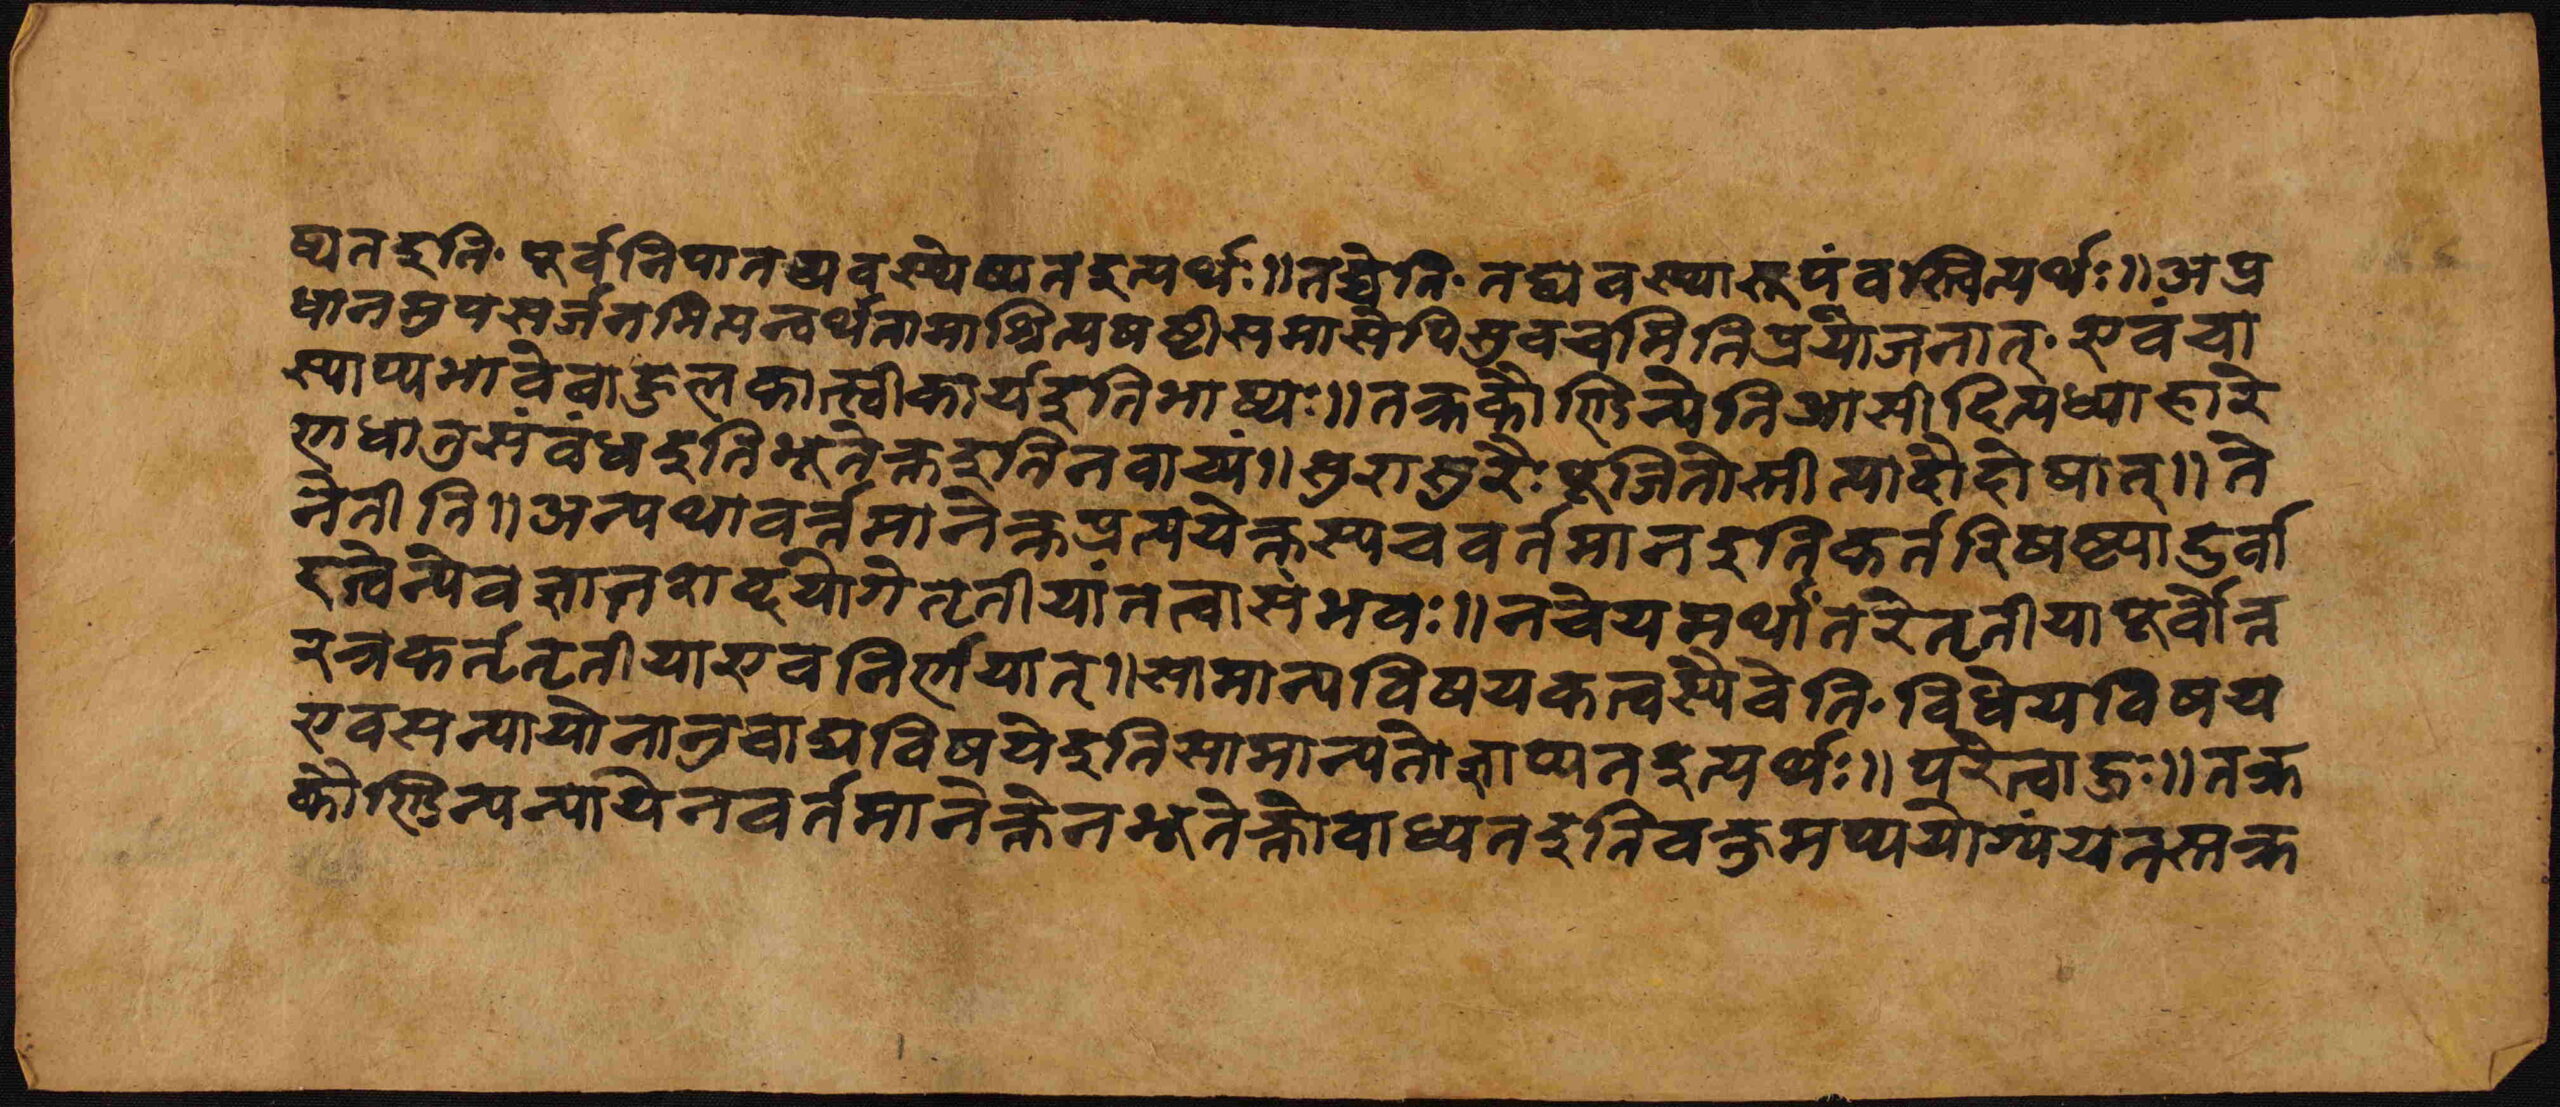 ष्यतइति॰ पूर्वनिपातव्यवस्थेष्यतइत्यर्थः॥तद्व्येति॰तद्व्यवस्थारूपंवस्त्वित्यर्थः॥अप्र
धानमुपसर्जनमित्यन्वर्थतामाश्रित्यषष्ठीसमासेपिसुवचमितिप्रयोजनात्॰एवंचा
स्याप्यभावेबाहुलकात्स्वीकार्यइतिभाष्यः॥तक्रकौण्डिन्येतिआसीदित्यध्याहारे
णधातुसंबंधइतिभूतेक्तइतिनवाच्यं॥सुरासुरैःपूजितोस्तीत्यादौदोषात्॥ते
नेतीति॥अन्यथावर्त्तमानेक्तप्रत्ययेक्तस्यचवर्तमानइतिकर्तरिषष्ठ्यादुर्वा
रत्वेन्येवज्ञातशब्दयोगेतृतीयांतत्वासंभवः॥नचेयमर्थांतरेतृतीयापूर्वोत्त
रत्रकर्तृतृतीयाएवनिर्णयात्॥सामान्यविषयकत्वस्यैवेति॰विधेयविषय
एवसन्यायोनानुवाद्यविषयेइतिसामान्यतोज्ञाप्यतइत्यर्थः॥परेत्वाहुः॥तक्र
कौण्डिन्यन्यायेनवर्तमानेक्तेनभूतेक्तोबाध्यतइतिवक्तुमप्ययोग्यंयतस्तक्र